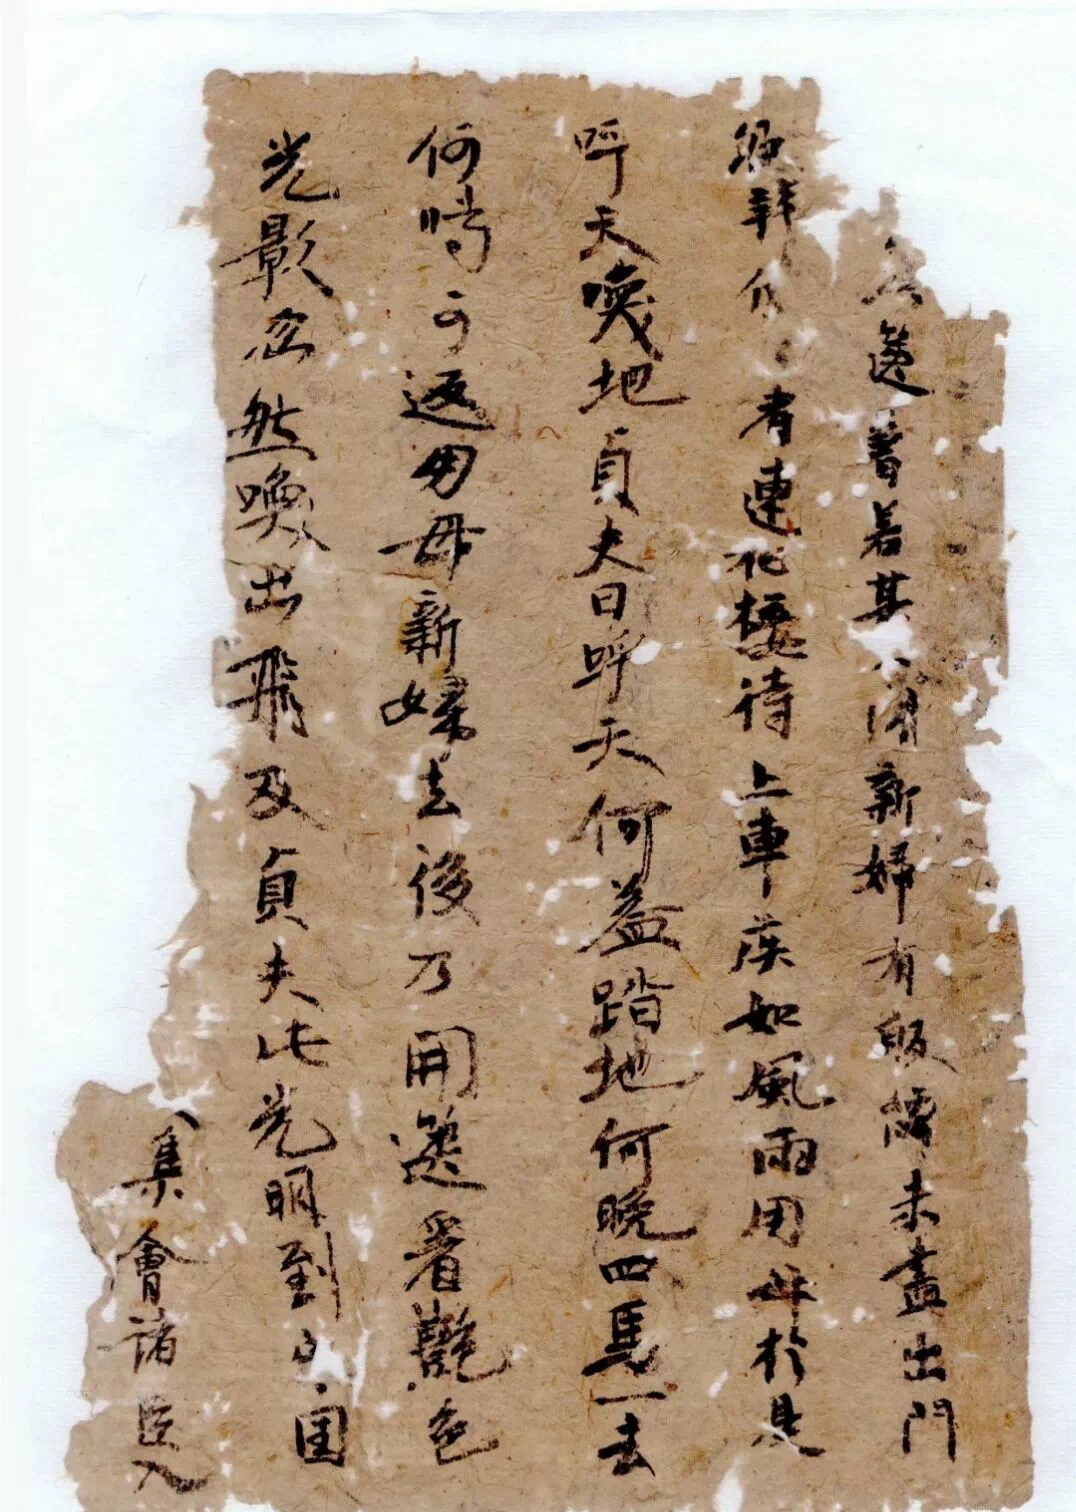 著若其 新婦有 未盡出門
者連把接待上車疾如風雨用母於是
呼天喚地貞夫曰呼天何益踏地何晚四馬一去
何時可返用母新婦去後乃開篋看艷色
光影忽然喚出飛及貞夫此光明到 国
集會諸臣人